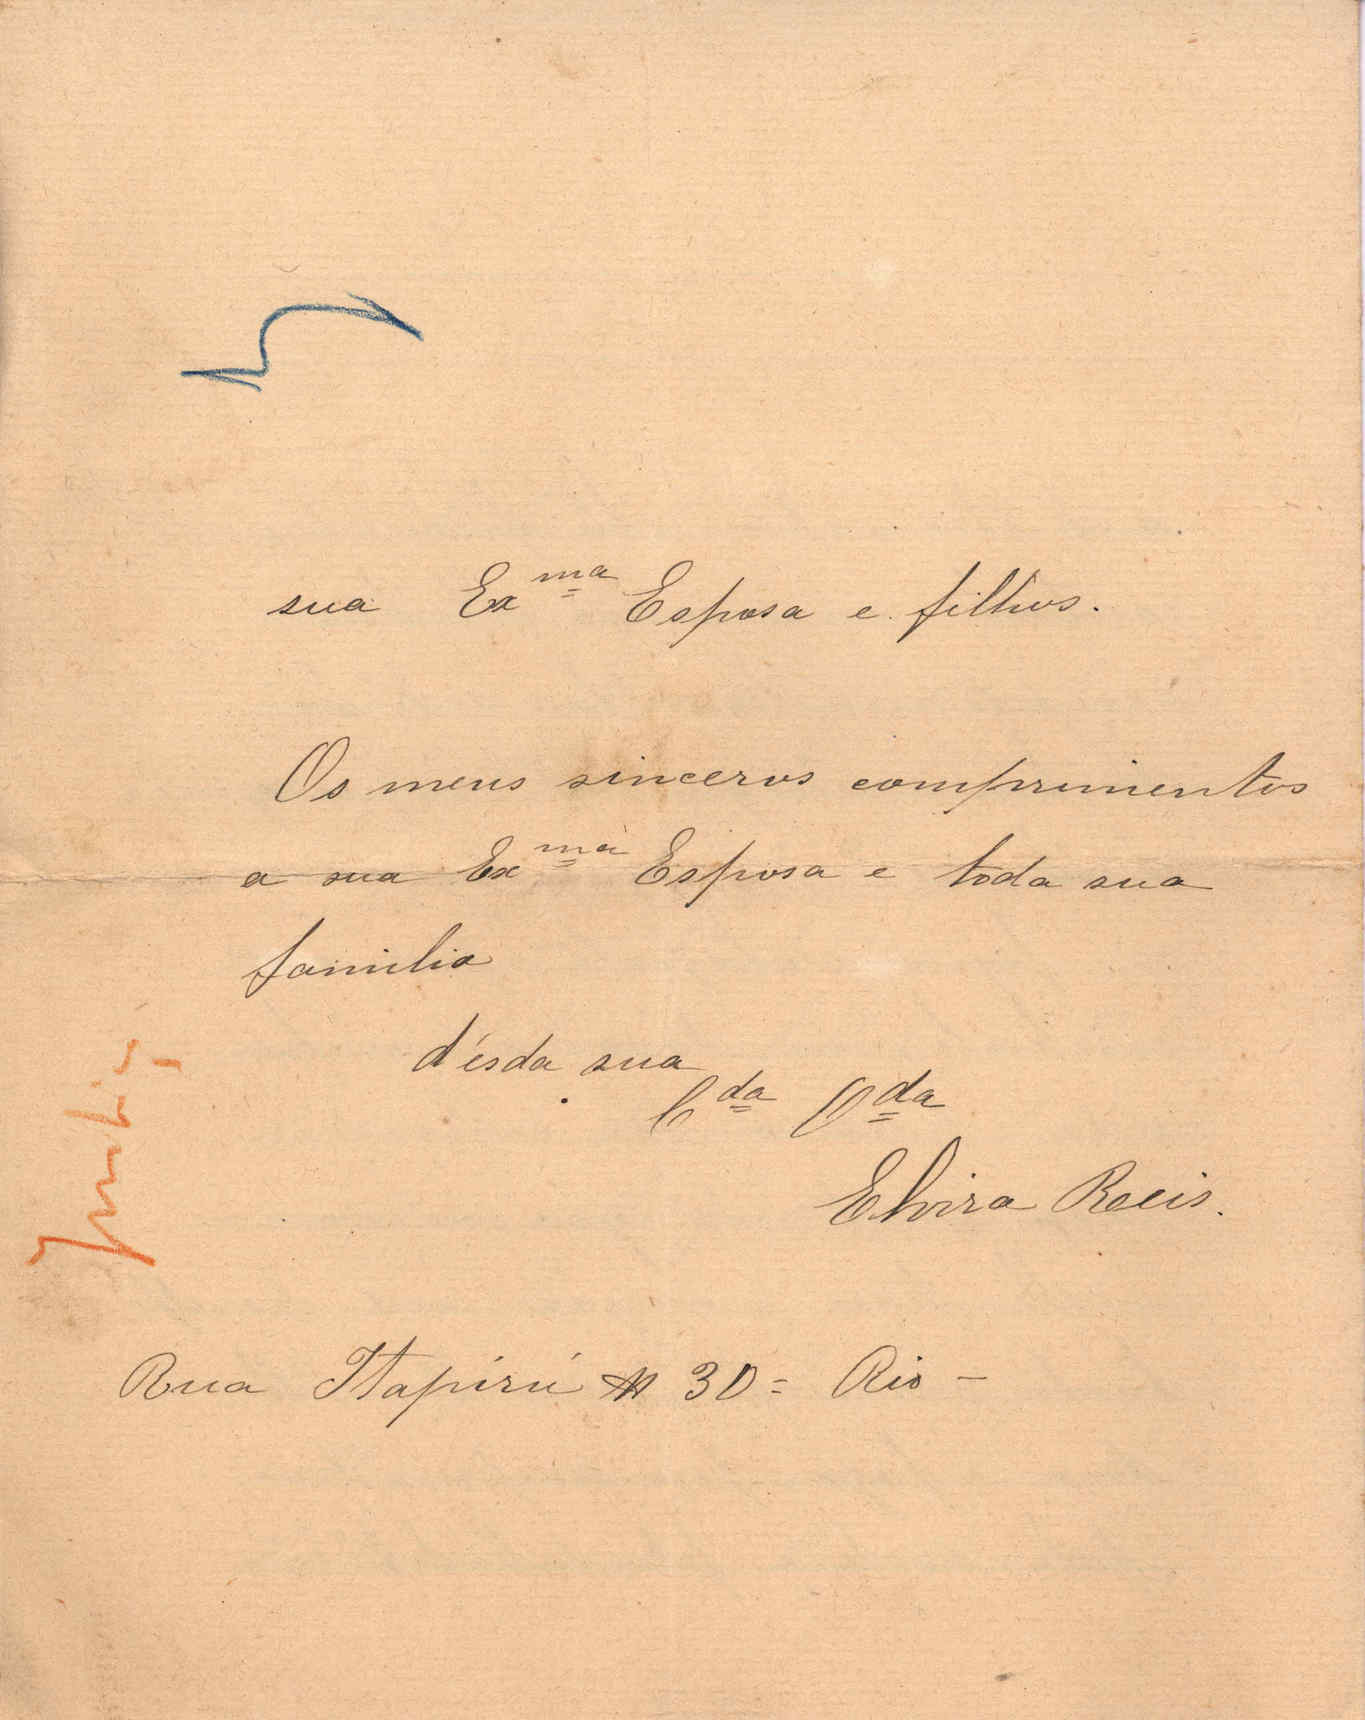 sua Exma Esposa e filhos.
Os meus sinceros comprimentos
a sua Exma Esposa e toda sua
familia
d'esda sua
Cda Oda
Elvira Reis.
Rua Itapirú N 30 = Rio -